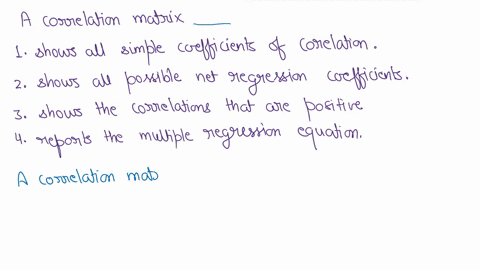 A correlation matrix ____
1. shows all simple coefficients of corelation.
2. shows all possible net regression coefficients.
3. shows the correlations that are positive
4. reports the multiple regression equation.
A correlation mat